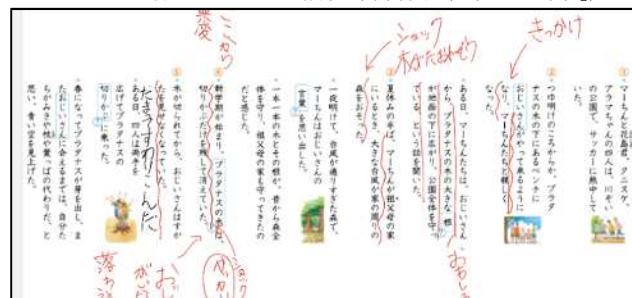 きっかけ
ショック
木がたおれそう
ここから
変
1
マーちんと花島君、クニスケ、
アラマちゃんの四人は、川ぞい
の公園で、サッカーに熱中して
いた。
2
つゆ明けのころからか、プラタ
ナスの木の下にあるベンチに
おじいさんがやって来るように
なり、マーちんたちと親しく
なった。
ある日、マーちんたちは、おじいさん
から、プラタナスの木の大きな根
が地面の下に広がり、公園全体を守っ
ている、という話を聞いた。
3
夏休みの半ば、マーちんが祖父母の家
にいるとき、大きな台風が家の周りの
森をおそった。
一夜明けて、台風が通りすぎた森で、
マーちんはおじいさんの
言葉を思い出した。
一本一本の木とその根が、昔から森全
体を守り、祖父母の家も守ってきたの
だと感じた。
4
新学期が始まり、プラタナスの木は、
切りかぶだけを残して消えていた。
5
木が切られてから、おじいさんはすが
たを見せなくなっていた。
ある日、四人は両手を
広げてプラタナスの
切りかぶに乗った。
春になってプラタナスが芽を出し、ま
たおじいさんに会えるまでは、自分た
ちがみきや枝や葉っぱの代わりだ、と
思い、青い空を見上げた。
ショック